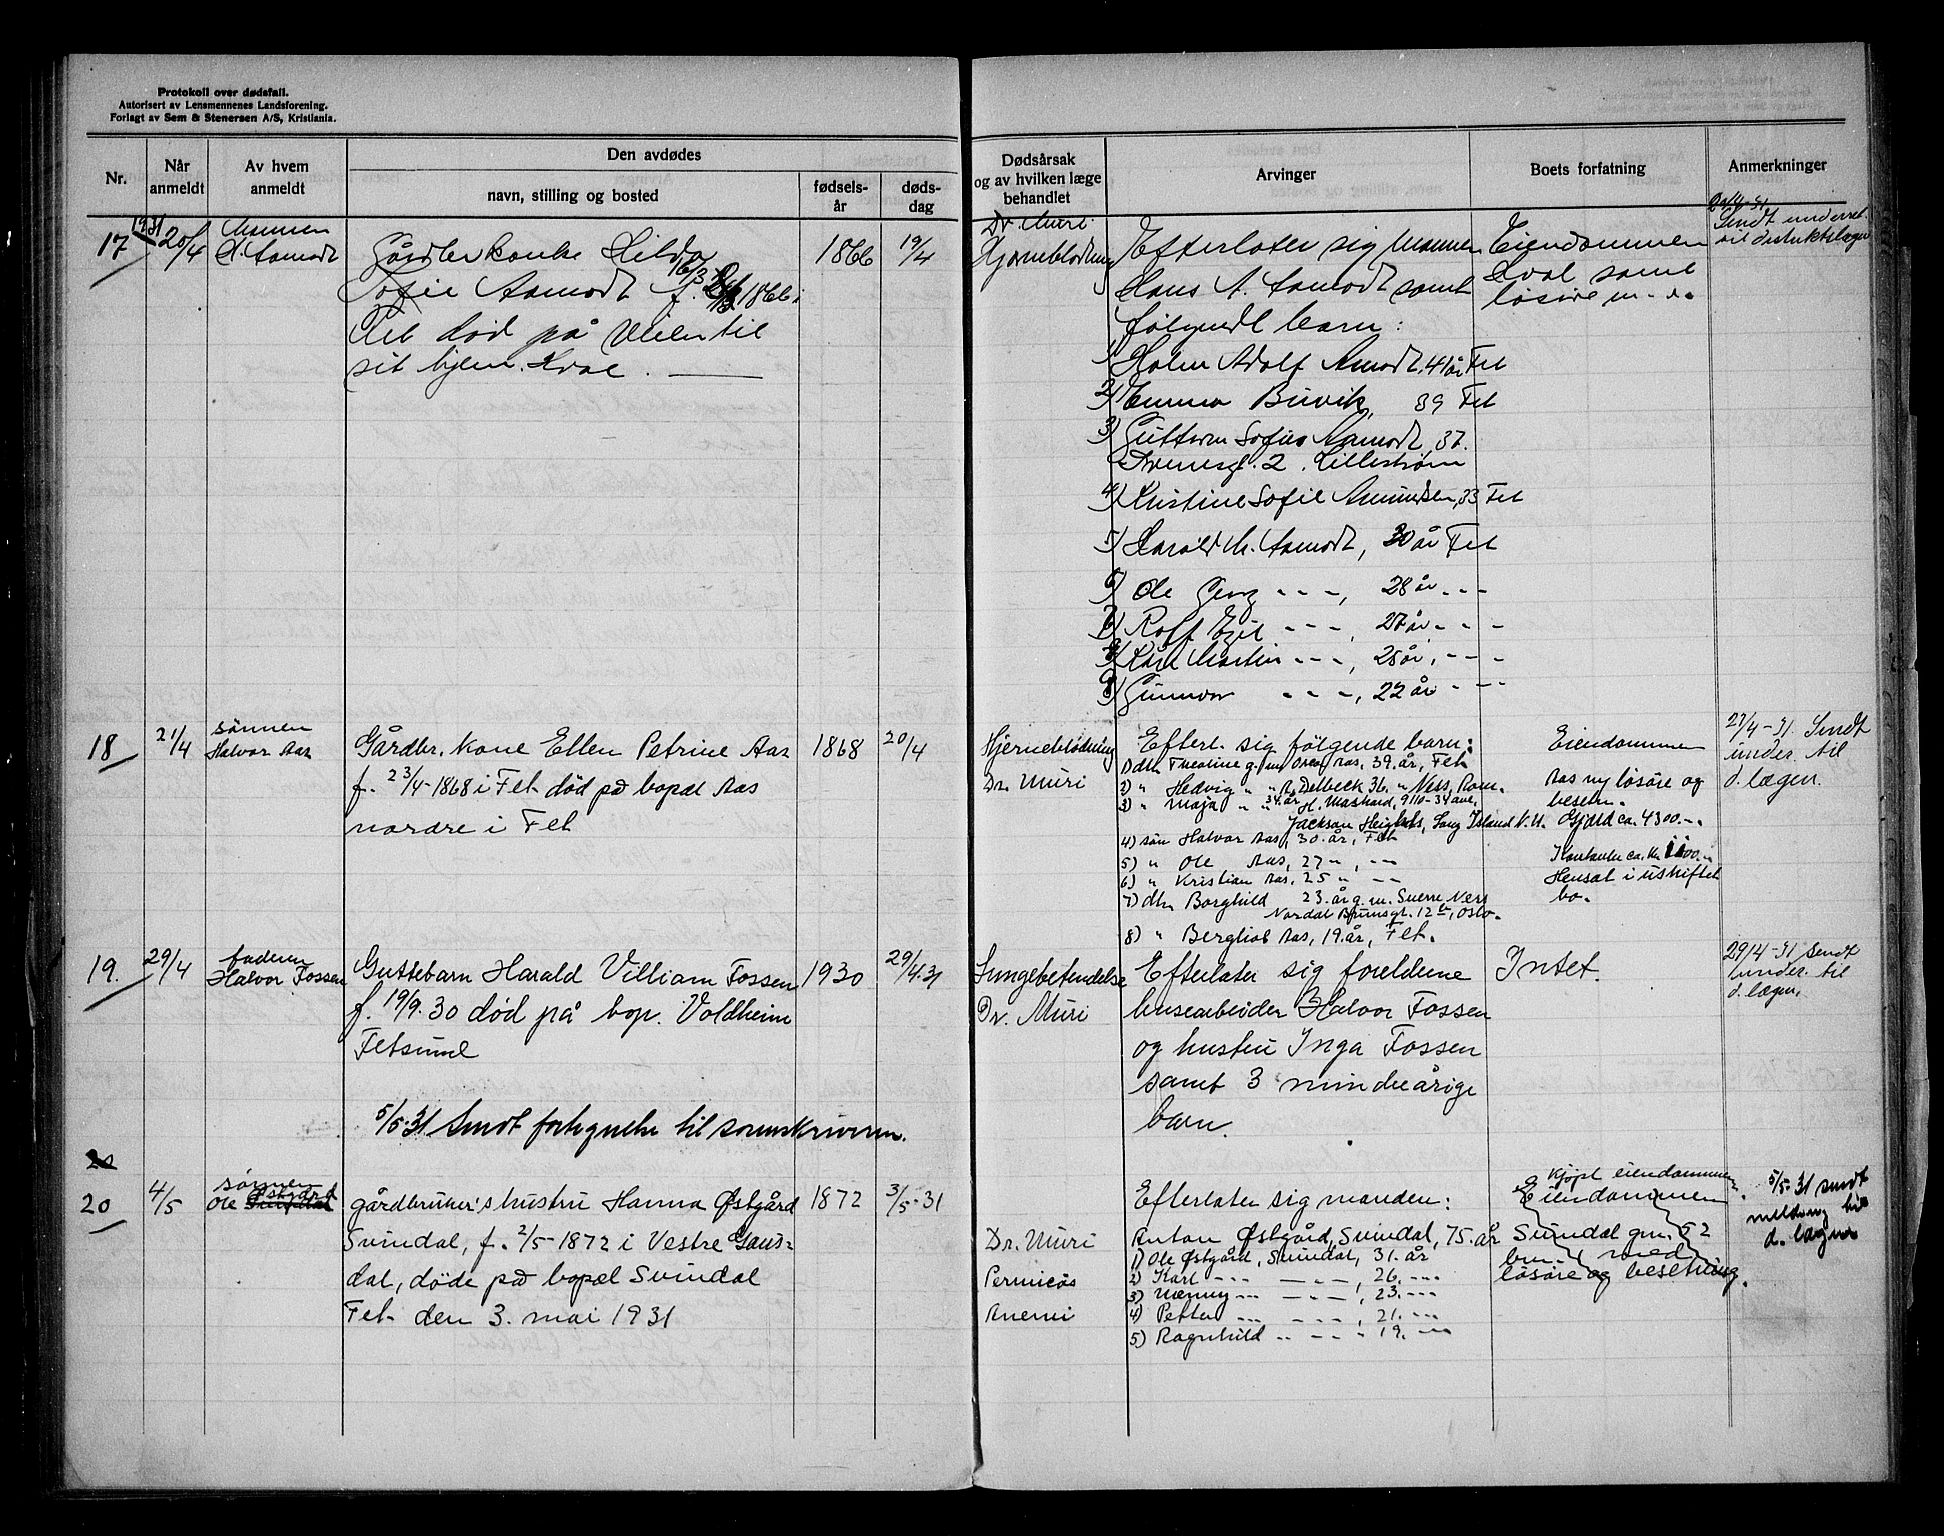 Protokoll over dødsfall.
Autorisert av Lensmennenes Landsforening.
Forlagt av Sem & Stenersen A/S, Kristiania.
Nr.
Når anmeldt
Av hvem anmeldt
Den avdødes
navn, stilling og bosted
fødsels-år
døds-dag
Dødsårsak og av hvilken læge behandlet
Arvinger
Boets forfatning
Anmerkninger
17
1931 20/4
Mannen
H. Aamodt
Gårdbr. kone Hilda
Sofie Aamodt f. 16/3 1866 i
Fet død på veien til
sit hjem. Hval.
1866
19/4
Dr. Muri
Hjerneblødning
Efterlater sig mannen
Hans A. Aamodt samt
følgende barn:
1) Holm Adolf Aamodt, 41 år Fet
2) Emma Buvik, 39 Fet
3) Guttorm Sofus Aamodt, 37.
2, Lillestrøm
4) Kristine Sofie Amundsen, 33 Fet
5) Harald M. Aamodt, 30 år Fet
6) Ole Georg - - -, 28 år - - -
7) Rolf Egil - - -, 27 år - - -
8) Kåre Martin - - -, 25 år, - - -
9) Gunnvor - - -, 22 år - - -
Eiendommen
Hval samt
løsøre m. v.
Sendt underret.
til distriktslægen
18
21/4
sønnen
Halvor Aas
Gårdbr. kone Ellen Petrine Aas
f. 23/4-1868 i Fet død på bopæl Aas
nordre i Fet
1868
20/4
Hjerneblødning
Dr. Muri
Efterl. sig følgende barn:
1) dtr. Thealine g. m. Aas, 39. år, Fet
2) " Hedvig " " R. Delbeck 36, " Nes, Rom.
3) " Maja " " 34 år H. Mashard, 9110-34 ave,
Jackson Heights, Long Island N.Y.
4) søn Halvor Aas, 30. år, Fet
5) " Ole Aas, 27 ", - -
6) " Kristian Aas, 25 " - -
7) dtr. Borghild 23. år g. m. Sverre Ness
Nordal Brunsgt. 12, Oslo.
8) " Bergliot Aas, 19. år, Fet.
Eiendommen
Aas ny løsøre og
besetn.
Gjæld ca. 4300.-
Kontanter ca. kr. 1100.-
Hensat i uskiftet
bo.
27/4-31. Sendt
under. til
d. lægen.
19.
29/4
faderen
Halvor Fossen
Guttebarn Harald Villiam Fossen
f. 19/9.30 død på bop. Voldheim
Fetsund
1930
29/4.31
Lungebetendelse
Dr. Muri
Efterlater sig foreldrene
husearbeider Halvor Fossen
og hustru Inga Fossen
samt 3 mindreårige
barn.
Intet.
29/4-31 Sendt
under. til
d. lægen.
5/5.31 Sendt fortegnelse til sorenskriveren.
20
20
4/5
sønnen
Ole Østgård
gårdbruker's hustru Hanna Østgård
Svindal, f. 2/5-1872 i Vestre Gaus-
dal, døde på bopæl Svindal
Fet den 3. mai 1931
1872
3/5-31
Dr. Muri
Perniciøs
Anemi
Efterlater sig manden:
Anton Østgård, Svindal, 75. år
1) Ole Østgård, Svindal, 31. år
2) Karl - - - - - -, 26. - - -
3) - - - - - -, 23. - - -
4) Petter - - - - - -, 21. - - -
5) Ragnhild - - - - - 19. - - -
kjøpt eiendommen
Eiendommen
Svindal gnr. 52
bnr. med
løsøre og besetning.
5/5-31 sendt
melding til
d. lægen